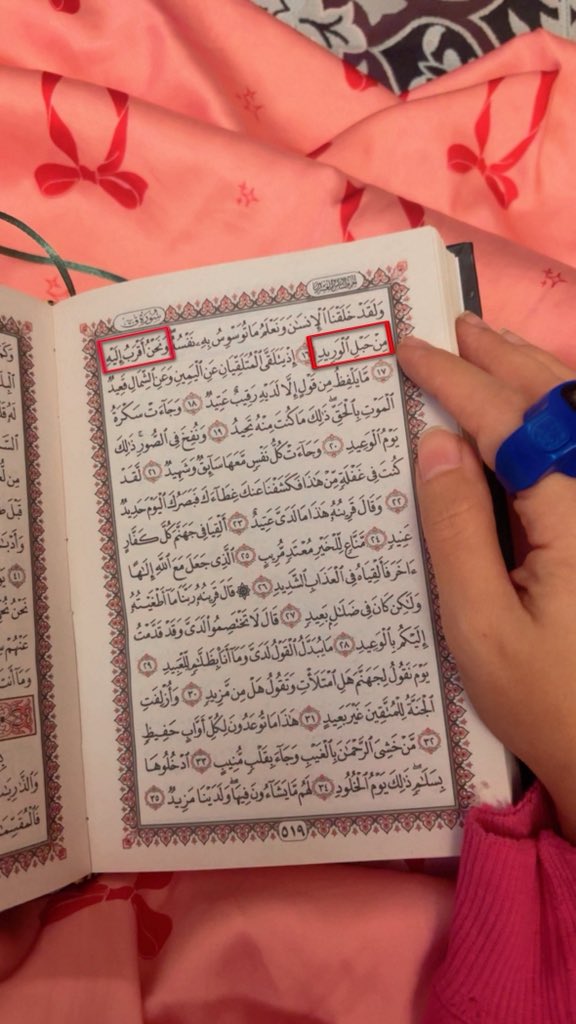 سورة ق
وَلَقَدْ خَلَقْنَا ٱلْإِنسَٰنَ وَنَعْلَمُ مَا تُوَسْوِسُ بِهِۦ نَفْسُهُۥ وَنَحْنُ أَقْرَبُ إِلَيْهِ
مِنْ حَبْلِ ٱلْوَرِيدِ ١٦ إِذْ يَتَلَقَّى ٱلْمُتَلَقِّيَانِ عَنِ ٱلْيَمِينِ وَعَنِ ٱلشِّمَالِ قَعِيدٌ
١٧ مَّا يَلْفِظُ مِن قَوْلٍ إِلَّا لَدَيْهِ رَقِيبٌ عَتِيدٌ ١٨ وَجَآءَتْ سَكْرَةُ
ٱلْمَوْتِ بِٱلْحَقِّ ذَٰلِكَ مَا كُنتَ مِنْهُ تَحِيدُ ١٩ وَنُفِخَ فِى ٱلصُّورِ ذَٰلِكَ
يَوْمُ ٱلْوَعِيدِ ٢٠ وَجَآءَتْ كُلُّ نَفْسٍ مَّعَهَا سَآئِقٌ وَشَهِيدٌ ٢١ لَّقَدْ
كُنتَ فِى غَفْلَةٍ مِّنْ هَٰذَا فَكَشَفْنَا عَنكَ غِطَآءَكَ فَبَصَرُكَ ٱلْيَوْمَ حَدِيدٌ
٢٢ وَقَالَ قَرِينُهُۥ هَٰذَا مَا لَدَىَّ عَتِيدٌ ٢٣ أَلْقِيَا فِى جَهَنَّمَ كُلَّ كَفَّارٍ
عَنِيدٍ ٢٤ مَّنَّاعٍ لِّلْخَيْرِ مُعْتَدٍ مُّرِيبٍ ٢٥ ٱلَّذِى جَعَلَ مَعَ ٱللَّهِ إِلَٰهًا
ءَاخَرَ فَأَلْقِيَاهُ فِى ٱلْعَذَابِ ٱلشَّدِيدِ ٢٦ ۞ قَالَ قَرِينُهُۥ رَبَّنَا مَآ أَطْغَيْتُهُۥ
وَلَٰكِن كَانَ فِى ضَلَٰلٍۭ بَعِيدٍ ٢٧ قَالَ لَا تَخْتَصِمُوا۟ لَدَىَّ وَقَدْ قَدَّمْتُ
إِلَيْكُم بِٱلْوَعِيدِ ٢٨ مَا يُبَدَّلُ ٱلْقَوْلُ لَدَىَّ وَمَآ أَنَا۠ بِظَلَّٰمٍ لِّلْعَبِيدِ ٢٩
يَوْمَ نَقُولُ لِجَهَنَّمَ هَلِ ٱمْتَلَأْتِ وَتَقُولُ هَلْ مِن مَّزِيدٍ ٣٠ وَأُزْلِفَتِ
ٱلْجَنَّةُ لِلْمُتَّقِينَ غَيْرَ بَعِيدٍ ٣١ هَٰذَا مَا تُوعَدُونَ لِكُلِّ أَوَّابٍ حَفِيظٍ
٣٢ مَّنْ خَشِىَ ٱلرَّحْمَٰنَ بِٱلْغَيْبِ وَجَآءَ بِقَلْبٍ مُّنِيبٍ ٣٣ ٱدْخُلُوهَا
بِسَلَٰمٍ ذَٰلِكَ يَوْمُ ٱلْخُلُودِ ٣٤ لَهُم مَّا يَشَآءُونَ فِيهَا وَلَدَيْنَا مَزِيدٌ ٣٥
٥١٩